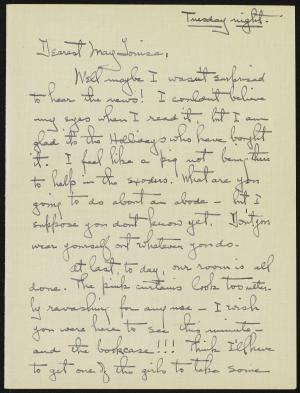 Tuesday night.
Dearest May Louise,
Well maybe I wasn't surprised
to hear the news! I couldn't believe
my eyes when I read it, but I am
glad it's the Hollidays who have bought
it. I feel like a pig not being there
to help in the exodus. What are you
going to do about an abode – but I
suppose you don't know yet. Don't you
wear yourself out whatever you do.
At last to day, our room is all
done. The pink curtains look too utter-
ly ravashing for any use – I wish
you were here to see this minute –
and the bookcase!!! Think I'll have
to get one of the girls to take some